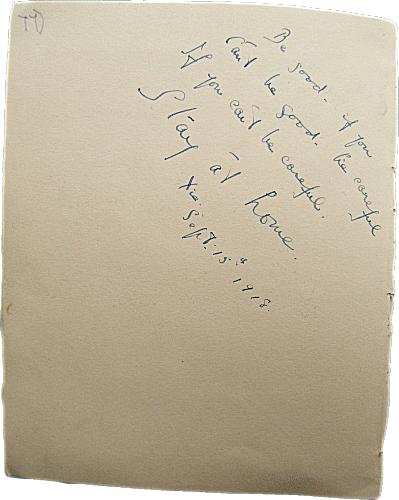 Be good - if you
can't be good - be careful
If you can't be careful.
Stay at home.
Sept. 15th 1918.